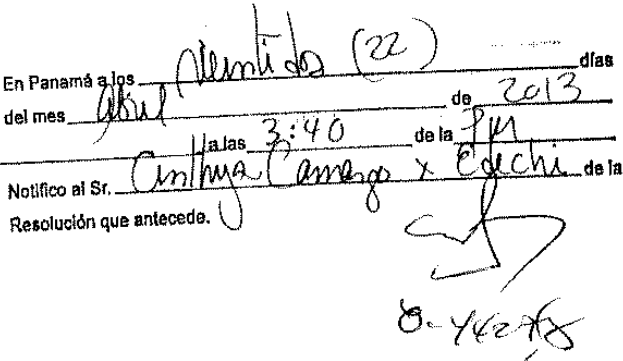 En Panamá a los veintidos (22) días
del mes abril de 2013
a las 3:40 de la PM
Notifico al Sr. Cinthya Camargo x Edechi de la
Resolución que antecede.